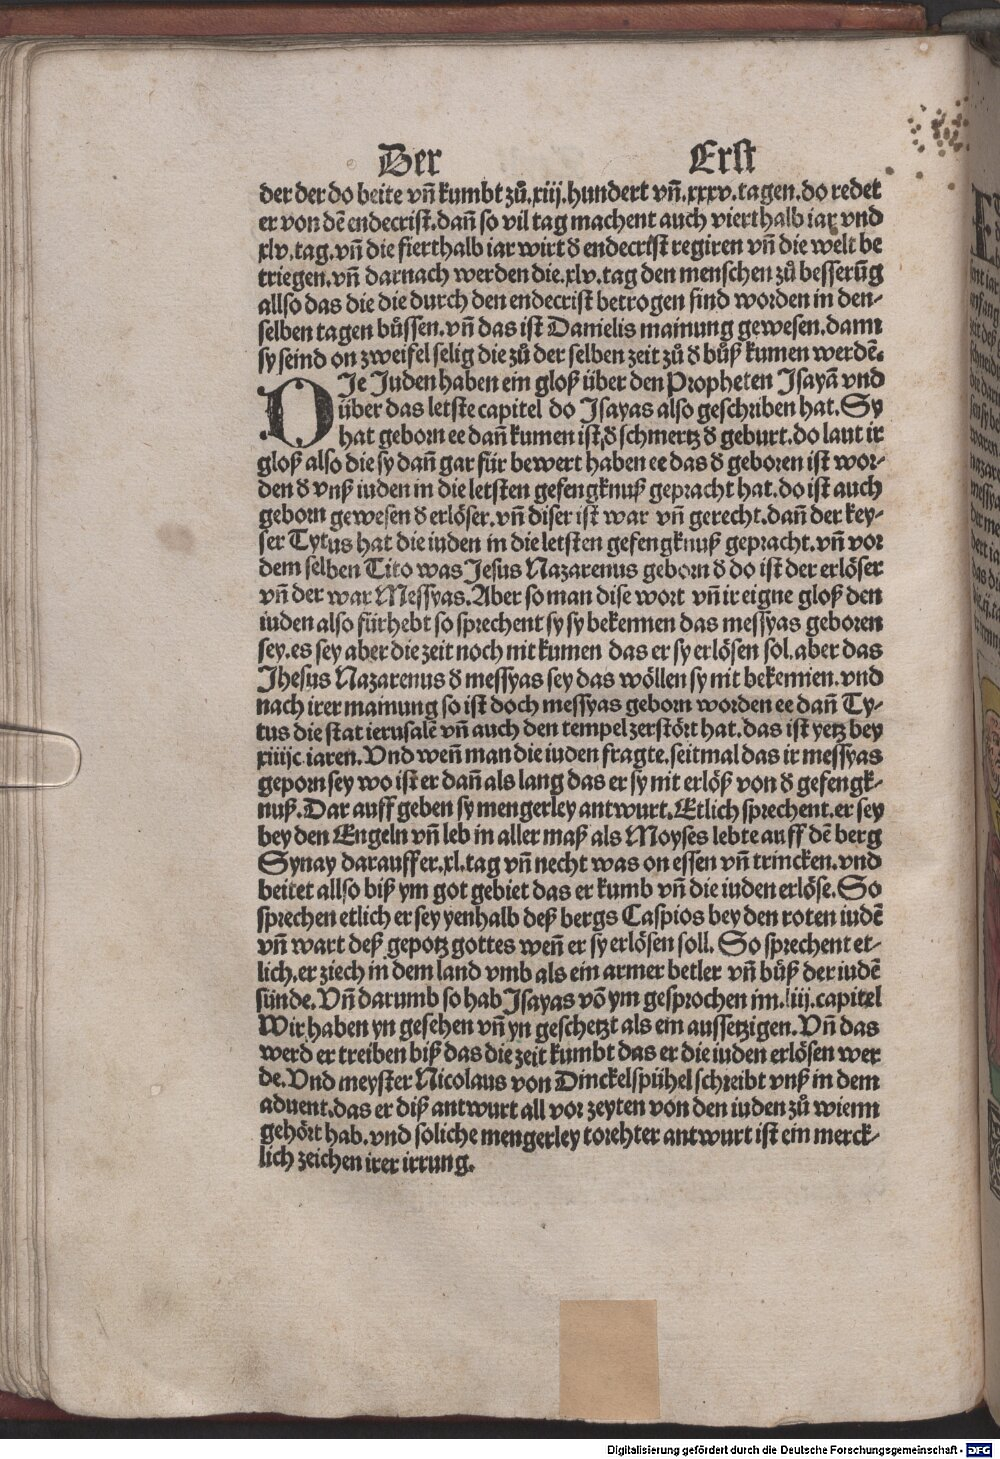 Der Erst
der der do beite vñ kumbt zů.xiij.hundert vñ.xxxv.tagen.do redet
er von dē endecrist.dañ so vil tag machent auch vierthalb iar vnd
xlv.tag.vñ die fierthalb iar wirt d endecrist regiren vñ die welt be
triegen.vñ darnach werden die.xlv.tag den menschen zů besserūg
allso das die die durch den endecrist betrogen sind worden in den-
selben tagen bůssen.vñ das ist Danielis mainung gewesen.dann
sy seind on zweifel selig die zů der selben zeit zů d bůß kumen werdē.
DIe Juden haben ein gloß über den Propheten Jsayā vnd
über das letste capitel do Jsayas also geschriben hat.Sy
hat geborn ee dañ kumen ist,d schmertz d geburt.do laut ir
gloß also die sy dañ gar für bewert haben ee das d geboren ist wor-
den d vnß iuden in die letsten gefengknuß gepracht hat.do ist auch
geborn gewesen d erlöser.vñ diser ist war vñ gerecht.dañ der key-
ser Tytus hat die iuden in die letsten gefengknuß gepracht.vñ vor
dem selben Tito was Jesus Nazarenus geborn d do ist der erlöser
vñ der war Messyas.Aber so man dise wort vñ ir eigne gloß den
iuden also fürhebt so sprechent sy sy bekennen das messyas geboren
sey.es sey aber die zeit noch nit kumen das er sy erlösen sol.aber das
Jhesus Nazarenus d messyas sey das wöllen sy nit bekennen.vnd
nach irer mainung so ist doch messyas geborn worden ee dañ Ty-
tus die stat ierusalē vñ auch den tempel zerstört hat.das ist yetz bey
xiiijc iaren.Vnd weñ man die iuden fragte.seitmal das ir messyas
geporn sey wo ist er dañ als lang das er sy nit erlöß von d gefengk-
nuß.Dar auff geben sy mengerley antwurt.Etlich sprechent.er sey
bey den Engeln vñ leb in aller maß als Moyses lebte auff dē berg
Synay darauff er.xl.tag vñ necht was on essen vñ trincken.vnd
beitet allso biß ym got gebiet das er kumb vñ die iuden erlöse.So
sprechen etlich er sey yenhalb deß bergs Caspios bey den roten iudē
vñ wart deß gepotz gottes weñ er sy erlösen soll. So sprechent et-
lich,er ziech in dem land vmb als ein armer betler vñ bůß der iudē
sünde.Vñ darumb so hab Jsayas vō ym gesprochen im.liij.capitel
Wir haben yn gesehen vñ yn geschetzt als ein aussetzigen.Vñ das
werd er treiben biß das die zeit kumbt das er die iuden erlösen wer
de.Vnd meyster Nicolaus von Dinckelspühel schreibt vnß in dem
aduent.das er diß antwurt all vor zeyten von den iuden zů wienn
gehört hab.vnd soliche mengerley torehter antwurt ist ein merck-
lich zeichen irer irrung.
Digitalisierung gefördert durch die Deutsche Forschungsgemeinschaft - DFG